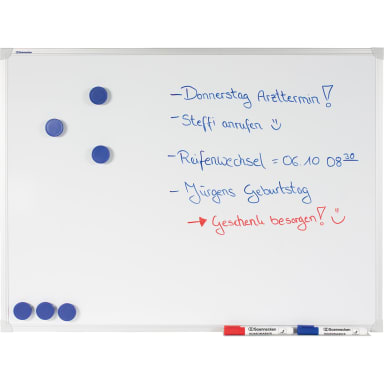 Soennecken
– Donnerstag Arzttermin!
– Steffi anrufen ☺
– Reifenwechsel = 06 10 08 30
– Jürgens Geburtstag
→ Geschenk besorgen! ☺
Soennecken
Soennecken